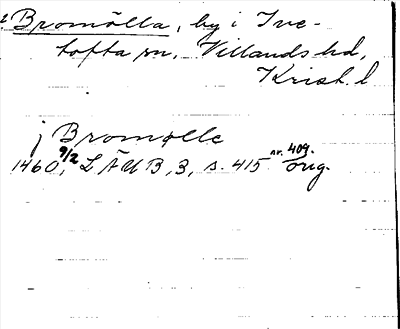 Bromölla, by i Ive-
tofta sn, Villands hd,
Krist. l
j Bromølle
1460 9/2, LÄUB, 3, s. 415 nr. 409. orig.